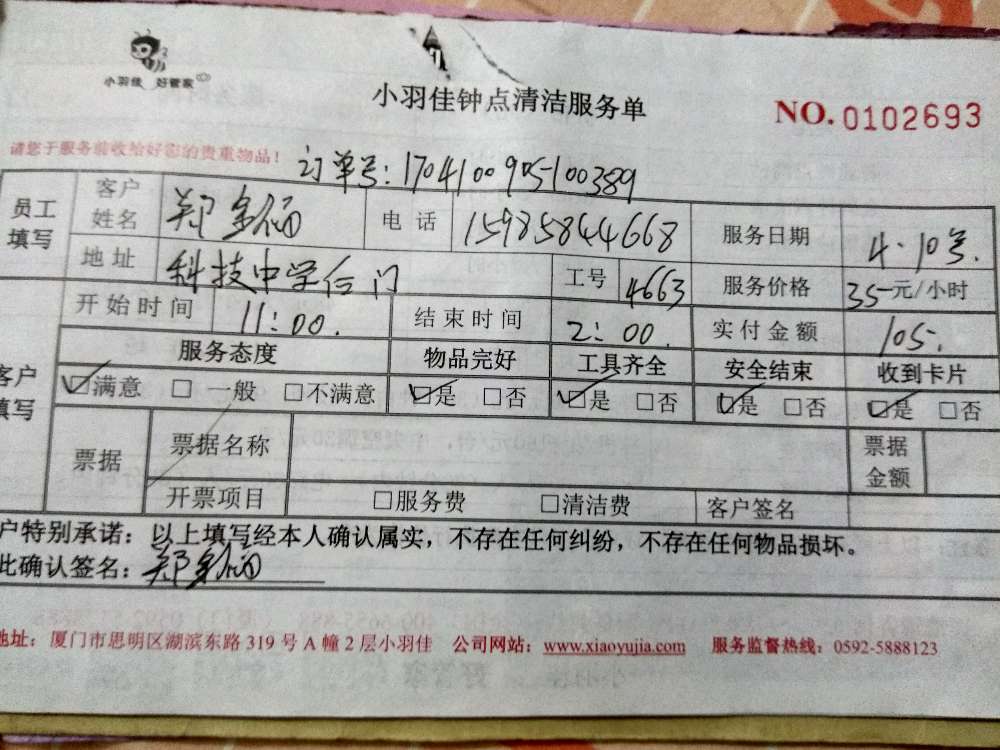 小羽佳 好管家
小羽佳钟点清洁服务单
NO. 0102693
请您于服务前收给好您的贵重物品！
订单号：1704100905100389
员工填写 客户姓名 郑 电话 15985844668 服务日期 4.10号.
地址 科技中学后门 工号 4663 服务价格 35元/小时
开始时间 11:00. 结束时间 2:00. 实付金额 105.
客户填写 服务态度 物品完好 工具齐全 安全结束 收到卡片
☑满意 □一般 □不满意 ☑是 □否 ☑是 □否 ☑是 □否 ☑是 □否
票据 票据名称 票据金额
开票项目 □服务费 □清洁费 客户签名
户特别承诺：以上填写经本人确认属实，不存在任何纠纷，不存在任何物品损坏。
此确认签名：郑
地址：厦门市思明区湖滨东路 319 号 A 幢 2 层小羽佳 公司网站：www.xiaoyujia.com 服务监督热线：0592-5888123